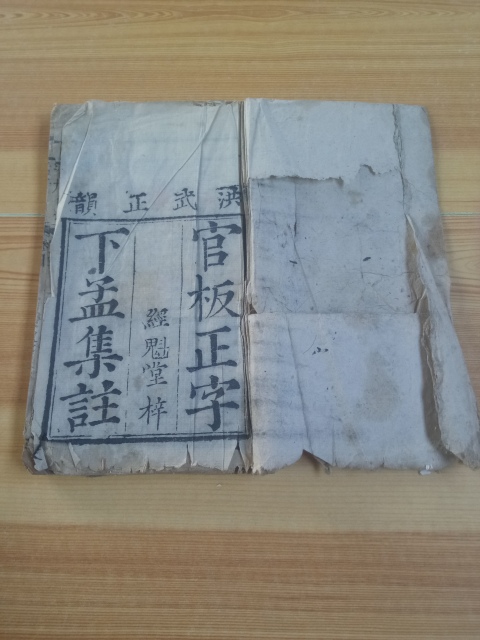 洪武正韻
官板正字
經魁堂梓
下孟集註